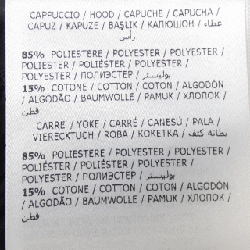 CAPPUCCIO / HOOD / CAPUCHE / CAPUCHA /
CAPUZ / KAPUZE / BAŞLIK / КАПЮШОН / غطاء
رأس
85% POLIESTERE / POLYESTER / POLYESTER /
POLIESTER / POLIÉSTER / POLYESTER /
POLYESTER / ПОЛИЭСТЕР / بوليستر
15% COTONE / COTTON / COTON / ALGODÓN
/ ALGODÃO / BAUMWOLLE / PAMUK / ХЛОПОК /
قطن
CARRE / YOKE / CARRÉ / CANESÚ / PALA /
VIERECKTUCH / ROBA / КОКЕТКА / بطانة كتف
85% POLIESTERE / POLYESTER / POLYESTER /
POLIÉSTER / POLIÉSTER / POLYESTER /
POLYESTER / ПОЛИЭСТЕР / بوليستر
15% COTONE / COTTON / COTON / ALGODÓN
/ ALGODÃO / BAUMWOLLE / PAMUK / ХЛОПОК /
قطن